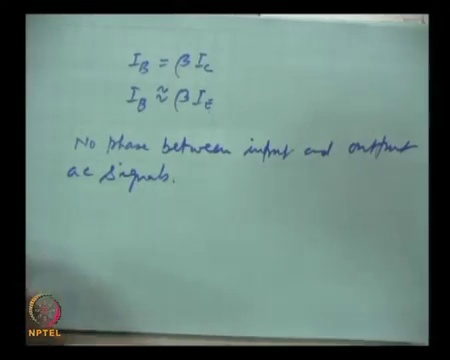 I_B = β I_C
I_B ≈ β I_E
No phase between input and output
ac signals.
NPTEL